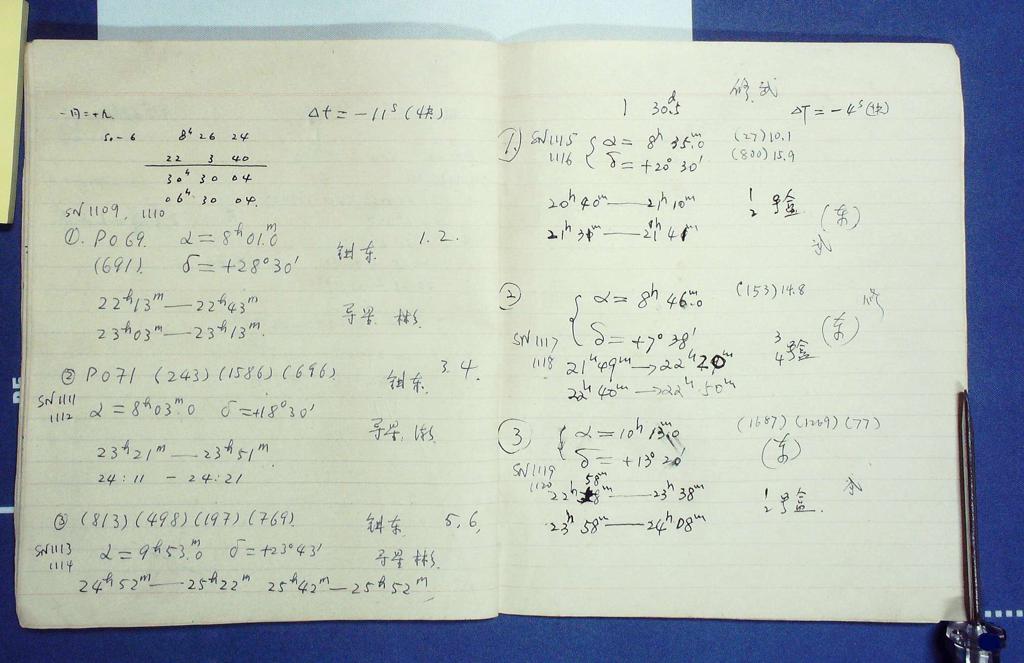 Δt = -11ˢ (快)
50-6 8ʰ 26 24
22 3 40
30ʰ 30 04
06ʰ 30 04.
SN1109, 1110
①. P069. α = 8ʰ01ᵐ.0 1. 2.
(691). δ = +28°30′
22ʰ13ᵐ — 22ʰ43ᵐ
23ʰ03ᵐ — 23ʰ13ᵐ.
导星. 彬
② P071 (243) (1586) (696) 3. 4.
SN1111
1112
α = 8ʰ03ᵐ.0 δ = +18°30′
导星.
23ʰ21ᵐ — 23ʰ51ᵐ
24:11 - 24:21
③ (813) (498) (197) (769). 5, 6,
SN1113
1114
α = 9ʰ53ᵐ.0 δ = +23°43′ 导星 彬.
24ʰ52ᵐ — 25ʰ22ᵐ 25ʰ42ᵐ — 25ʰ52ᵐ
修武
1 30ᵈ.5 ΔT = -4ˢ (快)
①. SN1115
1116
α = 8ʰ 35ᵐ.0 (27) 10.1
δ = +20° 30′ (800) 15.9
20ʰ40ᵐ — 21ʰ10ᵐ 1 2 号盒 (东)
21ʰ31ᵐ — 21ʰ41ᵐ 武
② α = 8ʰ 46ᵐ.0 (153) 14.8 修
SN1117
1118
δ = +7° 38′ 3 4 号盒 (东)
21ʰ49ᵐ → 22ʰ20ᵐ
22ʰ40ᵐ → 22ʰ50ᵐ
③ α = 10ʰ 13ᵐ.0 (1687) (1269) (77)
δ = +13° 20′ (东)
SN1119
1120
22ʰ58ᵐ — 23ʰ38ᵐ 1 2 号盒. 武
23ʰ58ᵐ — 24ʰ08ᵐ